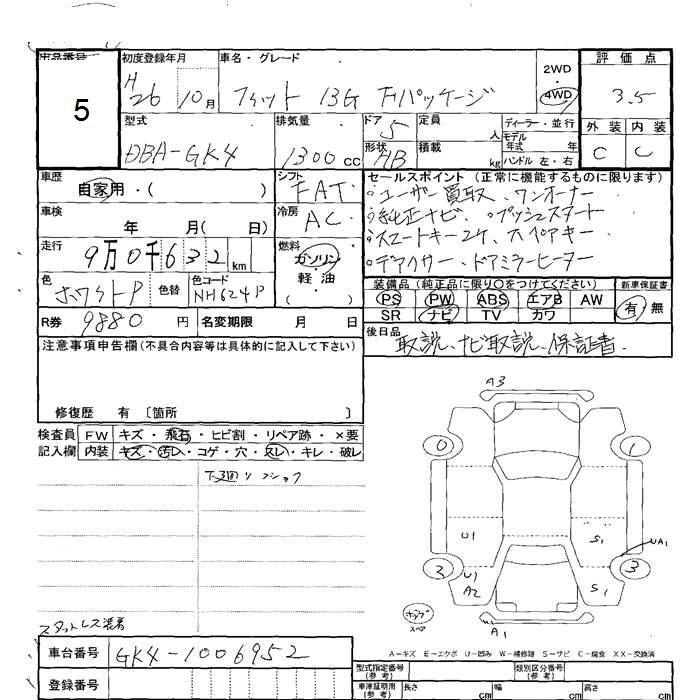 出品番号 5
初度登録年月 H26 10月
車名・グレード フィット 13G Fパッケージ
2WD・4WD
評価点 3.5
型式 DBA-GK4
排気量 1300cc
ドア 5
形状 HB
定員 人
積載 kg
ディーラー・並行
モデル年式 年
ハンドル 左・右
外装 内装
C C
車歴 自家用・( )
シフト FAT
車検 年 月( 日)
冷房 AC
走行 9万0千632km
燃料 ガソリン・軽油
色 ホワイトP
色替
色コード NH624P
R券 9880円
名変期限 月 日
セールスポイント (正常に機能するものに限ります)
・ユーザー買取、ワンオーナー
・純正ナビ、・プッシュスタート
・スマートキー2ケ、スペアキー
・デアイサー、ドアミラーヒーター
装備品 (純正品に限り○をつけてください)
PS PW ABS エアB AW
SR ナビ TV カワ
新車保証書 有・無
後日品 取説、ナビ取説、保証書
注意事項申告欄(不具合内容等は具体的に記入して下さい)
修復歴 有 〔箇所 〕
検査員記入欄
FW キズ・飛石・ヒビ割・リペア跡・×要
内装 キズ・汚れ・コゲ・穴・スレ・キレ・破レ
下廻りサビ
A3
0 1
U1 S1 UA1
2 3
U1 A2 S1
ホップ スペア
A1
A-キズ E-エクボ U-凹み W-補修跡 S-サビ C-腐食 XX-交換済
スタットレス装着
車台番号 GK4-1006952
登録番号
型式指定番号(参考)
類別区分番号(参考)
車庫証明用(参考) 長さ cm 幅 cm 高さ cm